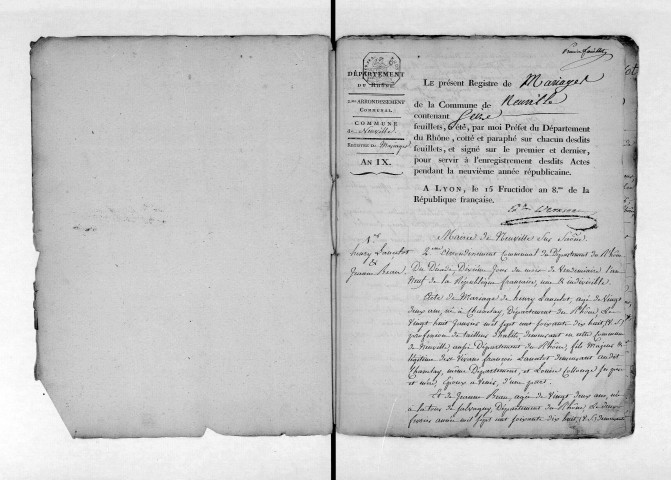 DÉPARTEMENT
DU RHÔNE.
2.me ARRONDISSEMENT
COMMUNAL.
COMMUNE
de Neuville
REGISTRE DE Mariages
AN IX.
LE présent Registre de Mariages
de la Commune de Neuville
contenant
feuillets, a été, par moi Préfet du Département
du Rhône, cotté et paraphé sur chacun desdits
feuillets, et signé sur le premier et dernier,
pour servir à l'enregistrement desdits Actes
pendant la neuvième année républicaine.
A LYON, le 15 Fructidor an 8.me de la
République française.
Mairie de Neuville Sur Saône
2.me Arrondissement Communal du Département du Rhône
Du Décadi, Dixième Jour du mois de Vendemiaire l'an
Neuf de la République française, une & indivisible.
Acte de Mariage de henry Lancelot, agé de Vingt
deux ans, né à Département du Rhône, Le
Vingt huit Janvier mil Sept cent soixante dix huit
profession de tailleur d'habits, demeurant en cette Commune
de Neuville Département du Rhône, fils Majeur &
légitime de françois Lancelot demeurant audit
même Département, et Louise
d'une part.
Et de Jeanne agée de Vingt deux ans, née
à la tour de Salvagny, Département du Rhône, Le
février mil Sept cent soixante dix huit demeurant
1.er
henry Lancelot
&
Jeanne